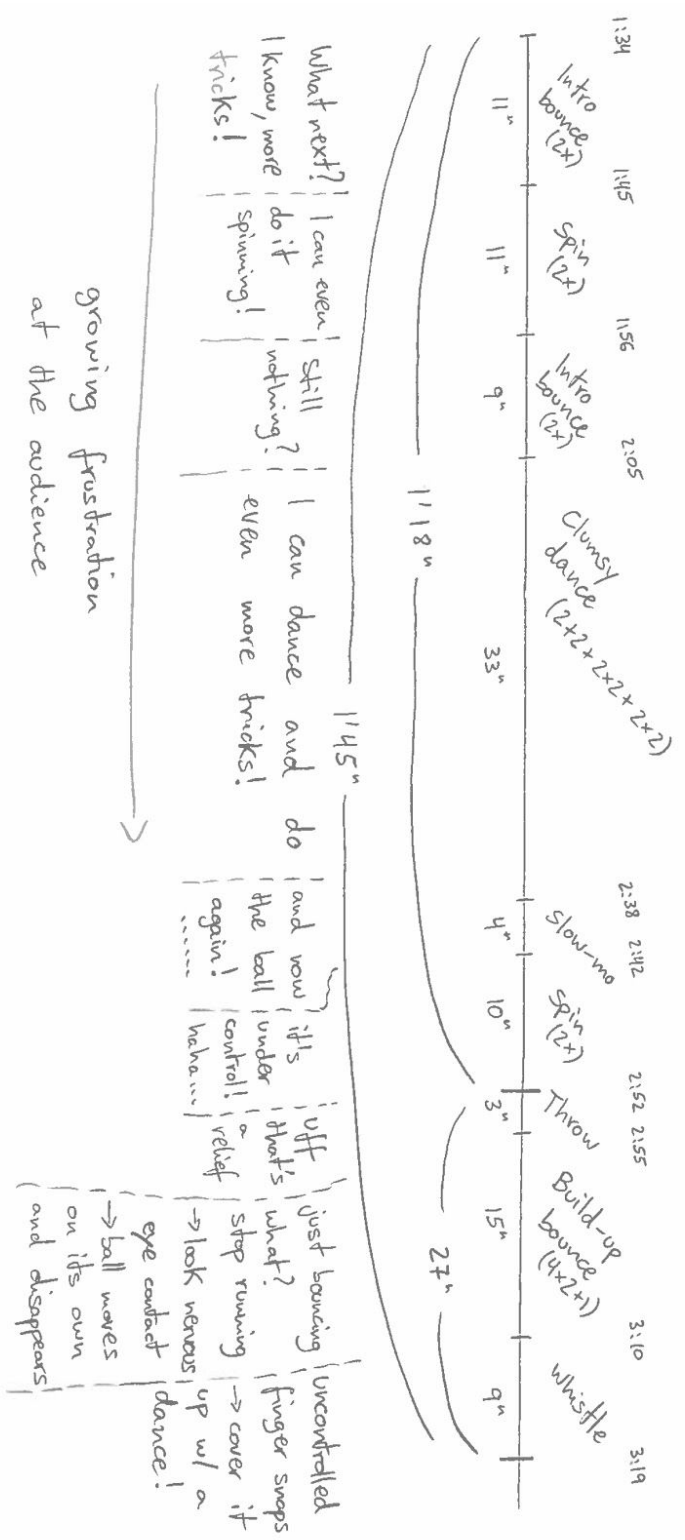 1:34 1:45 1:56 2:05 2:38 2:42 2:52 2:55 3:10 3:19
Intro
bounce
(2x)
Spin
(2x)
Intro
bounce
(2x)
Clumsy
dance
(2x2x2x2x2x2)
Slow-mo
Spin
(2x)
Throw
Build-up
bounce
(4x2+1)
Whistle
11" 11" 9" 33" 4" 10" 3" 15" 9"
1'18" 27"
1'45"
What next?
I know, more
tricks!
I can even
do it
spinning!
Still
nothing?
I can dance and do
even more tricks!
and now
the ball
again!
.......
it's
under
control!
haha...
uff
that's
a
relief
just bouncing
what?
stop running
→ look nervous
eye contact
→ ball moves
on it's own
and disappears
uncontrolled
finger snaps
→ cover it
up w/ a
dance!
growing frustration
at the audience